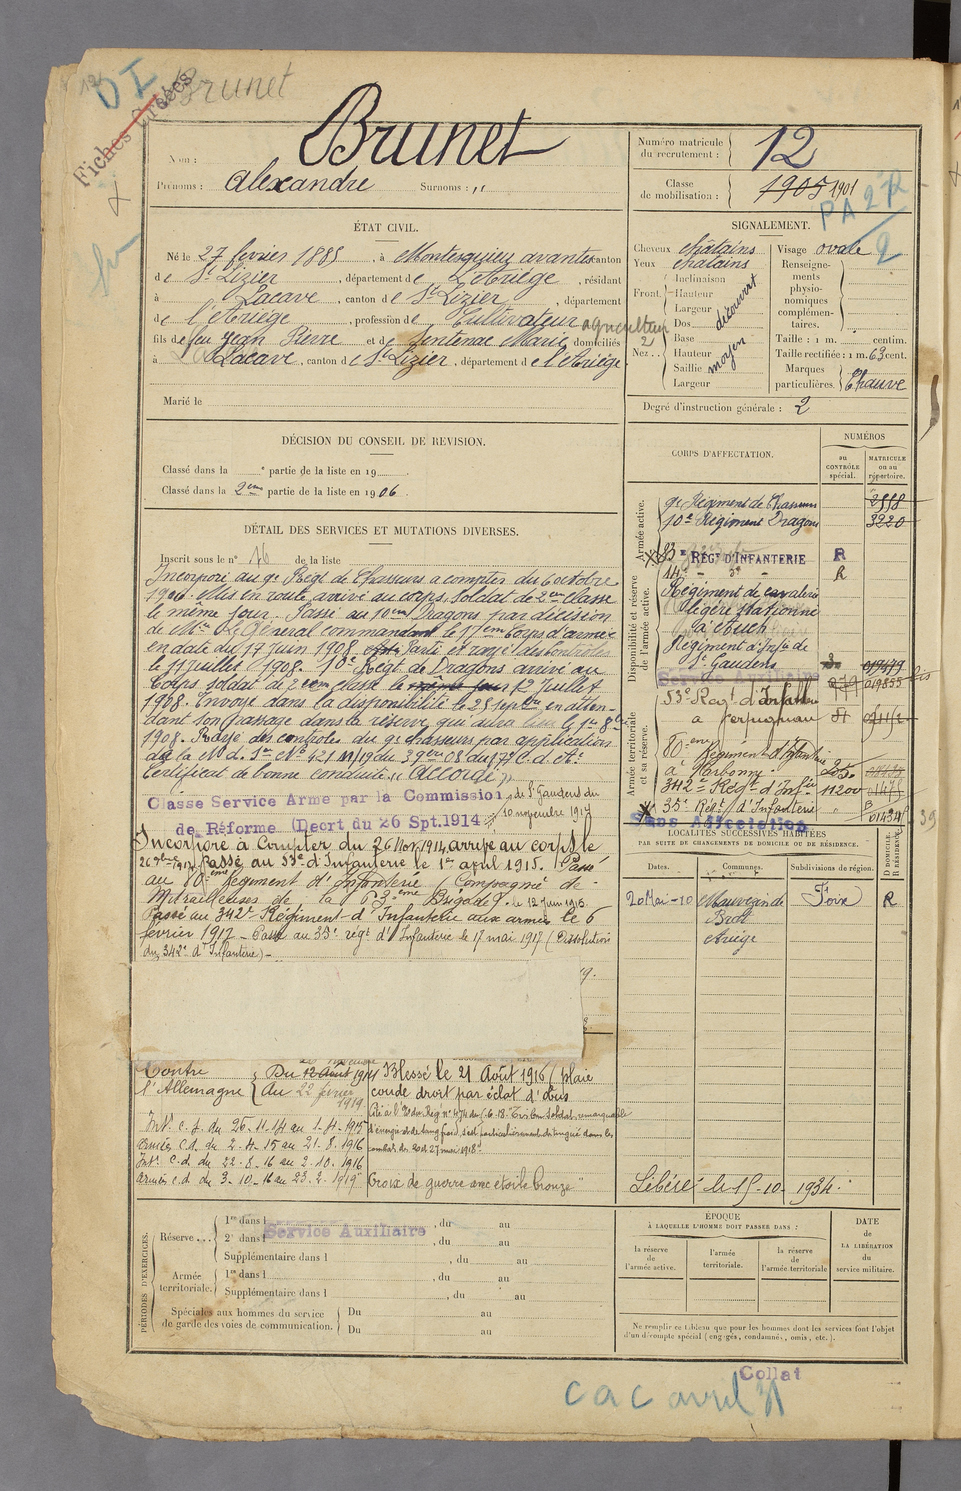 Brunet
Fiches Croisées
Nom :
Brunet
Prénoms : Alexandre Surnoms : "
Numéro matricule du recrutement : 12
Classe de mobilisation : 1905 1901
PA 27R
2
ÉTAT CIVIL.
Né le 27 février 1885, à Montesquieu avantes canton
de St Lizier, département de L'Ariège, résidant
à Lacave, canton de St Lizier, département
de l'Ariège, profession de Cultivateur agriculteur
fils de feu Jean Pierre et de Sentenac Marie domiciliés
à Lacave, canton de St Lizier, département de l'Ariège.
Marié le
SIGNALEMENT.
Cheveux châtains
Yeux châtains
Front. Inclinaison
Hauteur
Largeur
découvert
Nez... Dos
Base
Hauteur
Saillie
Largeur
moyen
2
Visage ovale
Renseigne-
ments
physio-
nomiques
complémen-
taires.
Taille : 1 m. centim.
Taille rectifiée : 1 m. 63 cent.
Marques
particulières. Chauve
Degré d'instruction générale : 2
DÉCISION DU CONSEIL DE REVISION.
Classé dans la e partie de la liste en 19
Classé dans la 2eme partie de la liste en 1906.
DÉTAIL DES SERVICES ET MUTATIONS DIVERSES.
Inscrit sous le n° 16 de la liste
Incorporé au 9e Régt de Chasseurs a compter du 6 octobre
1906. Mis en route, arrivé au corps, soldat de 2eme classe
le même jour. Passé au 10eme Dragons par décision
de Mr Le Général commandant le 17eme Corps d'armée
en date du 17 juin 1908. Parti et rayé des contrôles
le 11 juillet 1908. 10e Régt de Dragons arrivé au
Corps, soldat de 2eme classe le même jour 12 juillet
1908. Envoyé dans la disponibilité le 25 septbre en atten-
dant son passage dans la réserve qui aura lieu le 1er 8bre
1908. Rayé des contrôles du 9e chasseurs par application
de la N d. 1er No 421 M/19 du 3 9bre 08 du 17e C. d. Ae
Certificat de bonne conduite "Accordé"
Classe Service Armé par la Commission de St Gaudens du
de Réforme (Decrt du 26 Spt.1914 10 novembre 1914
Incorporé à Compter du 26 Nov. 1914 arrivé au corps le
Passé au 53e d'Infanterie le 1er april 1915. Passé
au 80eme Régiment d'Infanterie Compagnie de
Mitrailleuses de la 63eme Brigade. le 12 Juin 1916.
Passé au 342e Régiment d'Infanterie aux armées le 6
février 1917 - Passé au 35e régt d'Infanterie le 17 mai 1917 (Dissolution
du 342e d'Infanterie) -
Contre
l'Allemagne
Du 12 Août 1914
Au 22 février 1919
Intr c. d. du 26-11-14 au 1-4-1915
Armées C.d du 2-4-15 au 21-8-1916
Intr c.d. du 22-8-16 au 2-10-1916
Armées c.d du 3-10-16 au 23-2-1919
Blessé le 21 Août 1916 (plaie
coude droit par éclat d'obus
d'énergie et de sang froid, s'est particulièrement distingué dans les
Croix de guerre avec étoile bronze
CORPS D'AFFECTATION.
NUMÉROS
au
CONTRÔLE
spécial.
MATRICULE
ou au
répertoire.
Armée active.
9e Régiment de Chasseurs 2558
10e Régiment Dragons 3220
Disponibilité et réserve
de l'armée active.
83e REGt D'INFANTERIE R
14e - do - R
Régiment de cavalerie
légère stationné
à Auch
Régiment d'Infie de
St Gaudens
Service Auxiliaire
Armée territoriale
et sa réserve.
53e Regt d'Infanterie
à Perpignan
80eme Régiment d'Infanterie
à Narbonne
342e Régt d'Infie 11200
35e Régt d'Infanterie
Sans Affectation
LOCALITÉS SUCCESSIVES HABITÉES
PAR SUITE DE CHANGEMENTS DE DOMICILE OU DE RÉSIDENCE.
Dates.
Communes.
Subdivisions de région.
D DOMICILE.
R RÉSIDENCE.
20 Mai-10 Mauvezin de Foix R
Ariège
Libéré le 15-10-1934.
PÉRIODES D'EXERCICES.
Réserve...
1re dans l , du au
2e dans l , du au
Service Auxiliaire
Supplémentaire dans l , du au
Armée
territoriale.
1re dans l , du au
Supplémentaire dans l , du au
Spéciales aux hommes du service
de garde des voies de communication.
Du au
Du au
ÉPOQUE
À LAQUELLE L'HOMME DOIT PASSER DANS :
la réserve
de l'armée active.
l'armée
territoriale.
la réserve
de l'armée territoriale
DATE
de
LA LIBÉRATION
du
service militaire.
Ne remplir ce tableau que pour les hommes dont les services font l'objet
d'un décompte spécial (engagés, condamnés, omis, etc.).
Collat
cac avril 31